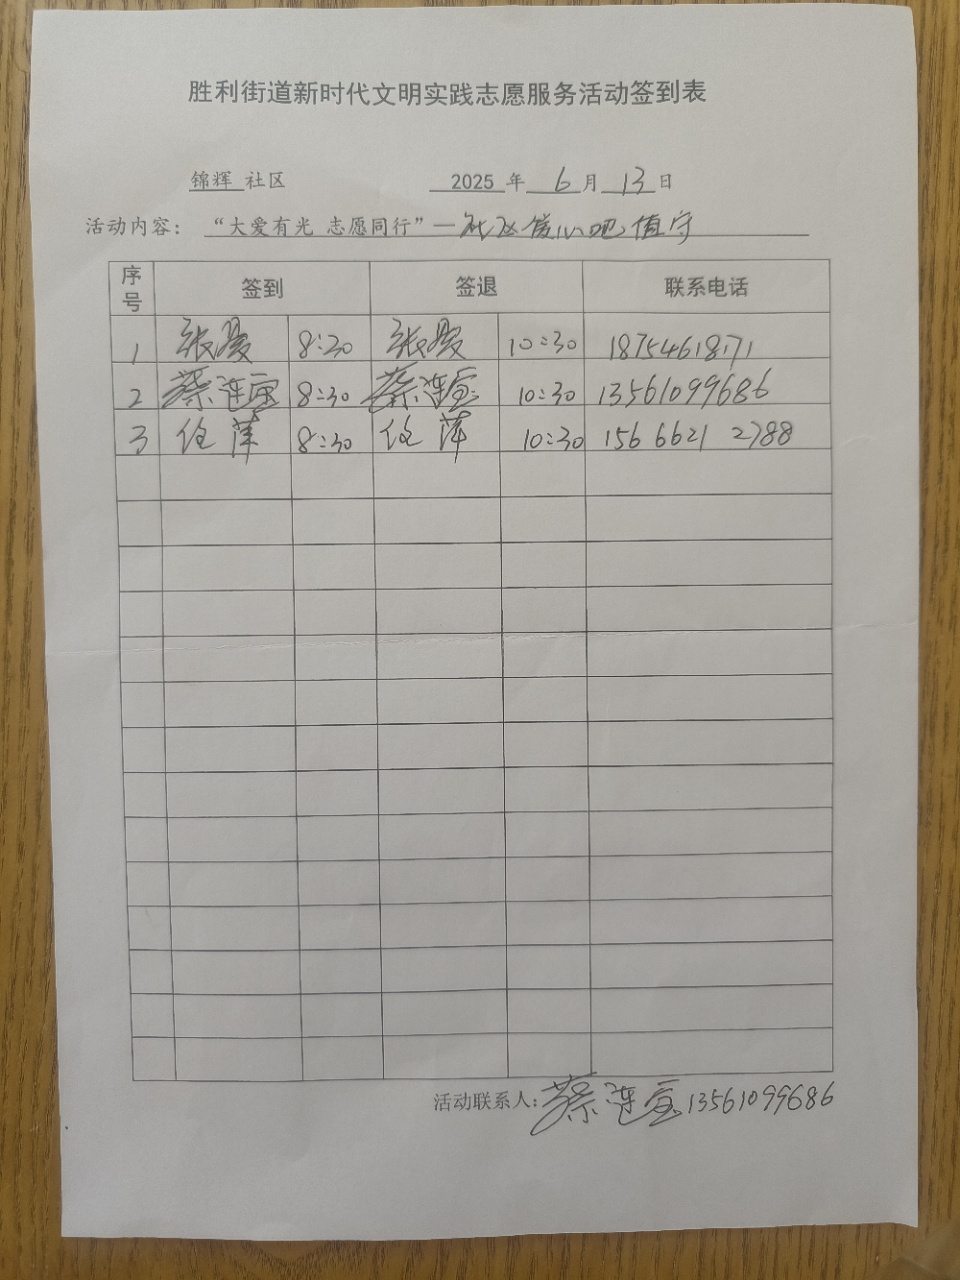 胜利街道新时代文明实践志愿服务活动签到表
锦辉 社区 2025 年 6 月 13 日
活动内容： “大爱有光 志愿同行”—社区爱心吧值守
序号 签到 签退 联系电话
1 张爱 8:30 张爱 10:30 18754618171
2 蔡莲宝 8:30 蔡莲宝 10:30 13561099686
3 任萍 8:30 任萍 10:30 156 6621 2788
活动联系人: 蔡莲宝 13561099686